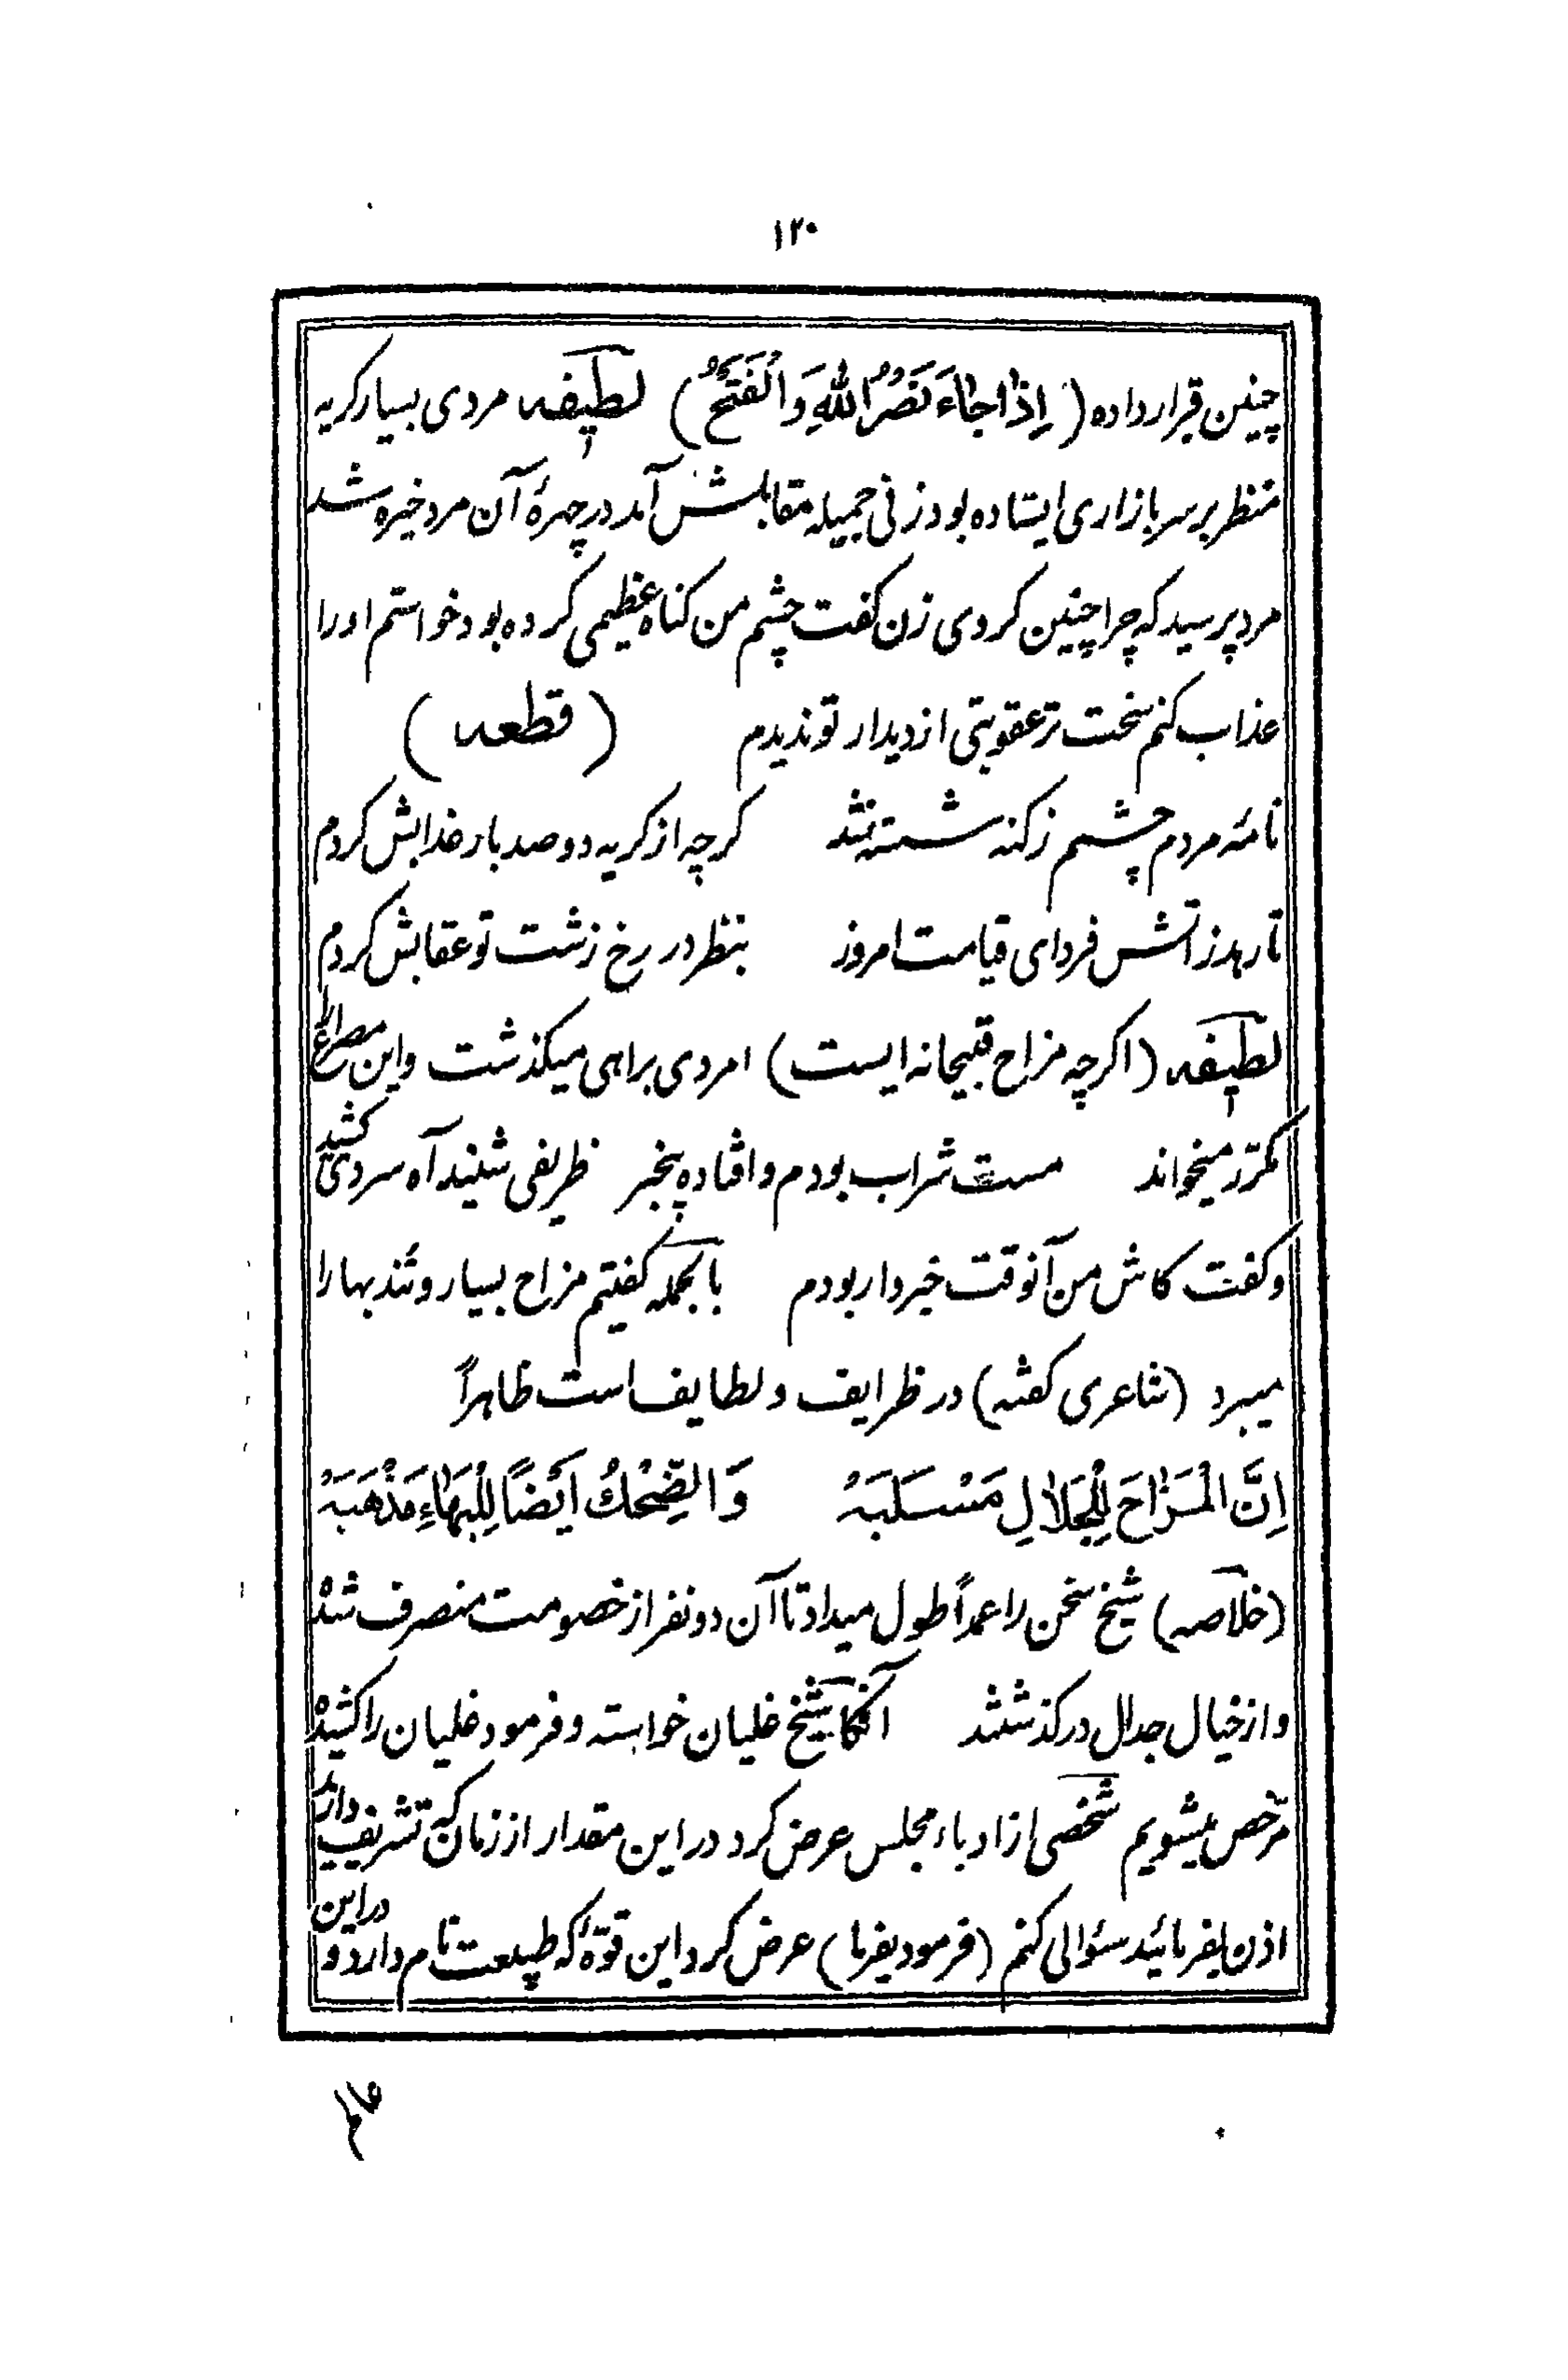 ۱۲۰
چنین قرار داده (اِذٰا جٰاءَ نَصْرُ اللهِ وَ الْفَتْحُ) لطیفه مردی بسیار کریه
منظر بر سر بازاری ایستاده بود زنی جمیله مقابلش آمد در چهرهٔ آن مرد خیره شد
مرد پرسید که چرا چنین کردی زن کفت چشم من کناه عظیمی کرده بود خواستم او را
عذاب کنم سخت تر عقوبتی از دیدار تو ندیدم (قطعه)
نامهٔ مردم چشمم ز کنه شسته نشد کرچه از کریه دو صد بار عذابش کردم
تا رهد ز آتش فردای قیامت امروز بنظر در رخ زشت تو عقابش کردم
لطیفه (اکرچه مزاح قبیحانه ایست) امردی براهی میکذشت و این مصراع را
مکرّر میخواند مست شراب بودم و افتاده بیخبر ظریفی شنید آه سردی کشید
و کفت کاش من آنوقت خبردار بودم بالجمله کفتیم مزاح بسیار رونق بها را
میبرد (شاعری کفته) در ظرایف و لطایف است ظاهراً
اِنَّ الْمَزٰاحَ لِلْجَلاٰلِ مَسْلَبَهْ وَ الضِّحْكُ اَیْضاً لِلْبَهٰاءِ مَذْهَبَهْ
(خلاصه) شیخ سخن را عمداً طول میداد تا آن دو نفر از خصومت منصرف شدند
و از خیال جدال درکذشتند آنکاه شیخ غلیان خواسته و فرمود غلیان را کشیده
مرّخص میشویم شخصی از ادباء مجلس عرض کرد در این مقدار از زمان که تشریف دارید
اذن بفرمائید سئوالی کنم (فرمود بفرما) عرض کرد این قوّهٔ که طبیعت نام دارد و در این
عالم